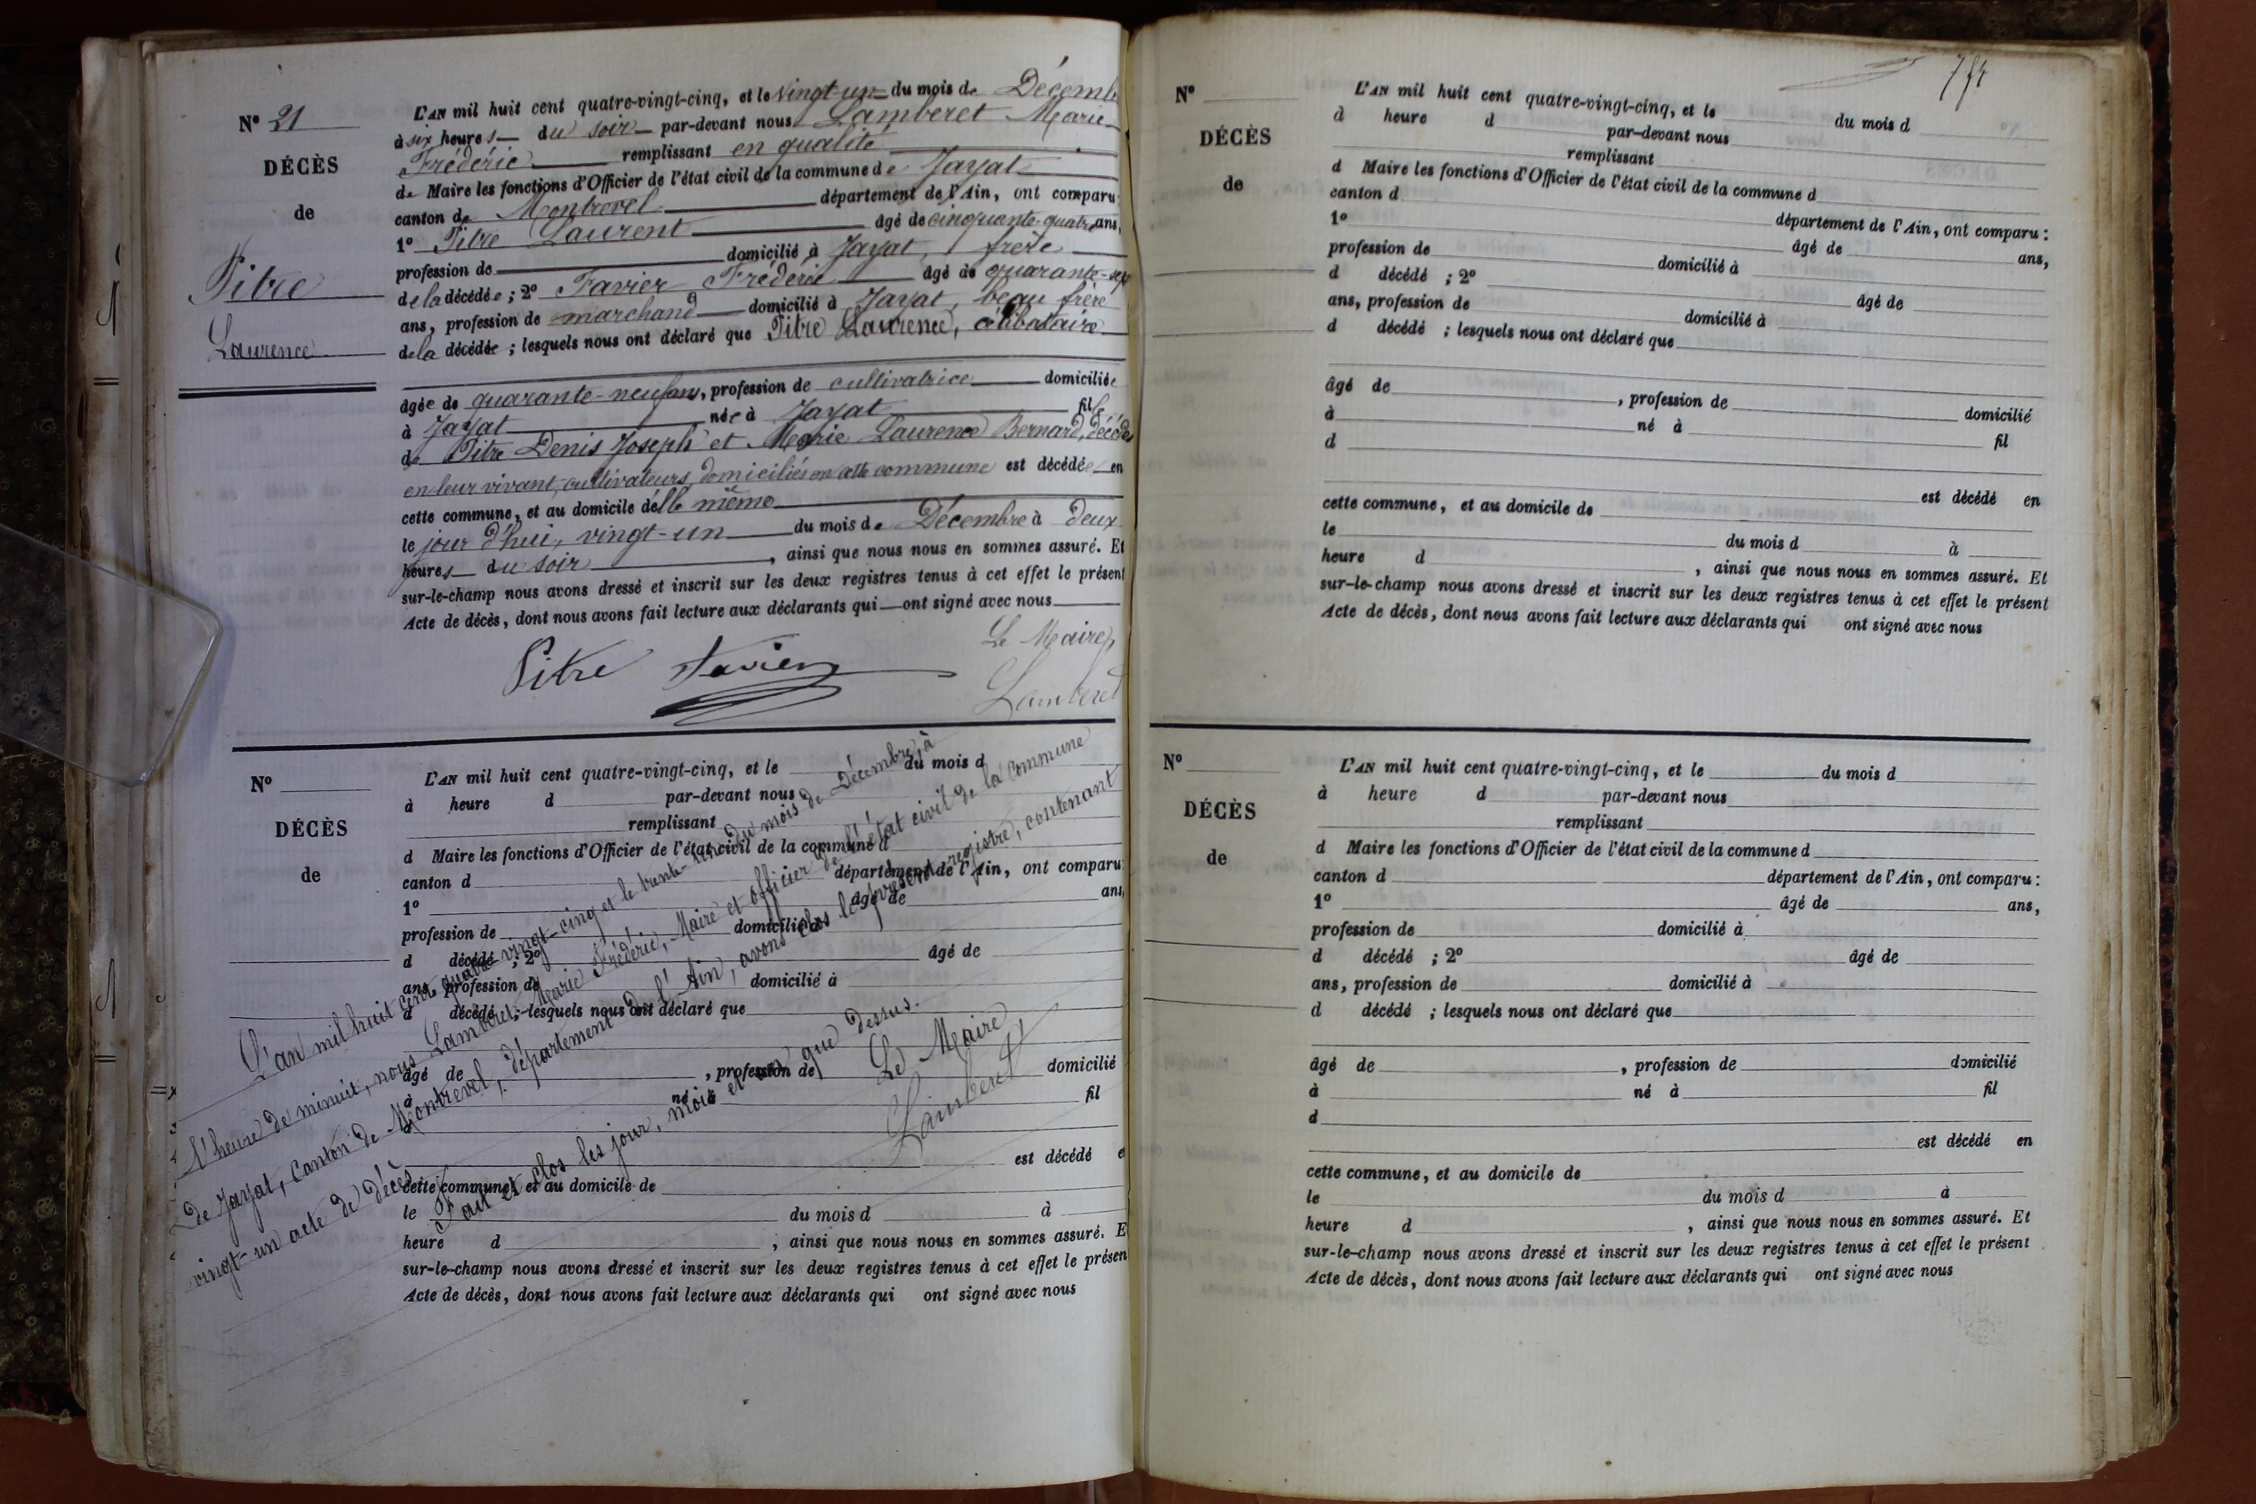 N° 21
DÉCÈS
de
Pitre
Laurence
L'AN mil huit cent quatre-vingt-cinq, et le vingt-un du mois de Décemb
à six heures du soir par-devant nous Lamberet Marie
Frédéric remplissant en qualité
de Maire les fonctions d'Officier de l'état civil de la commune de Jayat
canton de Montrevel département de l'Ain, ont comparu
1° Pitre Laurent âgé de cinquante-quatre ans,
profession de domicilié à Jayat, frère
de la décédée ; 2° Favier Frédéric âgé de quarante-sep
ans, profession de marchand domicilié à Jayat, beau frère
de la décédée ; lesquels nous ont déclaré que Pitre Laurence, célibataire
âgée de quarante-neuf ans, profession de cultivatrice domiciliée
à Jayat née à Jayat fille
de Pitre Denis Joseph et Marie Laurence Bernard, décédés
en leur vivant, cultivateurs, domiciliés en cette commune est décédée en
cette commune, et au domicile d'elle même
le jour d'hui, vingt-un du mois de Décembre à deux
heures du soir, ainsi que nous nous en sommes assuré. Et
sur-le-champ nous avons dressé et inscrit sur les deux registres tenus à cet effet le présent
Acte de décès, dont nous avons fait lecture aux déclarants qui ont signé avec nous
Le Maire,
Pitre Favier Lamberet
N°
DÉCÈS
de
L'AN mil huit cent quatre-vingt-cinq, et le du mois d
à heure d par-devant nous
remplissant
d Maire les fonctions d'Officier de l'état civil de la commune d
canton d département de l'Ain, ont comparu
1° âgé de ans,
profession de domicilié à
d décédé ; 2° âgé de
ans, profession de domicilié à
d décédé ; lesquels nous ont déclaré que
âgé de , profession de domicilié
à né à fil
d
est décédé e
cette commune, et au domicile de
le du mois d à
heure d , ainsi que nous nous en sommes assuré. E
sur-le-champ nous avons dressé et inscrit sur les deux registres tenus à cet effet le présen
Acte de décès, dont nous avons fait lecture aux déclarants qui ont signé avec nous
L'an mil huit cent quatre vingt-cinq et le trente-un du mois de Décembre, à
l'heure de minuit, nous Lamberet Marie Frédéric, Maire et officier de l'état civil de la commune
de Jayat, Canton de Montrevel, département de l'Ain, avons clos le présent registre, contenant
vingt-un acte de décès.
Fait et clos les jour, mois et an que dessus.
Le Maire
Lamberet
N°
DÉCÈS
de
L'AN mil huit cent quatre-vingt-cinq, et le du mois d
à heure d par-devant nous
remplissant
d Maire les fonctions d'Officier de l'état civil de la commune d
canton d département de l'Ain, ont comparu :
1° âgé de ans,
profession de domicilié à
d décédé ; 2° âgé de
ans, profession de domicilié à
d décédé ; lesquels nous ont déclaré que
âgé de , profession de domicilié
à né à fil
d
est décédé en
cette commune, et au domicile de
le du mois d à
heure d , ainsi que nous nous en sommes assuré. Et
sur-le-champ nous avons dressé et inscrit sur les deux registres tenus à cet effet le présent
Acte de décès, dont nous avons fait lecture aux déclarants qui ont signé avec nous
N°
DÉCÈS
de
L'AN mil huit cent quatre-vingt-cinq, et le du mois d
à heure d par-devant nous
remplissant
d Maire les fonctions d'Officier de l'état civil de la commune d
canton d département de l'Ain, ont comparu :
1° âgé de ans,
profession de domicilié à
d décédé ; 2° âgé de
ans, profession de domicilié à
d décédé ; lesquels nous ont déclaré que
âgé de , profession de domicilié
à né à fil
d
est décédé en
cette commune, et au domicile de
le du mois d à
heure d , ainsi que nous nous en sommes assuré. Et
sur-le-champ nous avons dressé et inscrit sur les deux registres tenus à cet effet le présent
Acte de décès, dont nous avons fait lecture aux déclarants qui ont signé avec nous